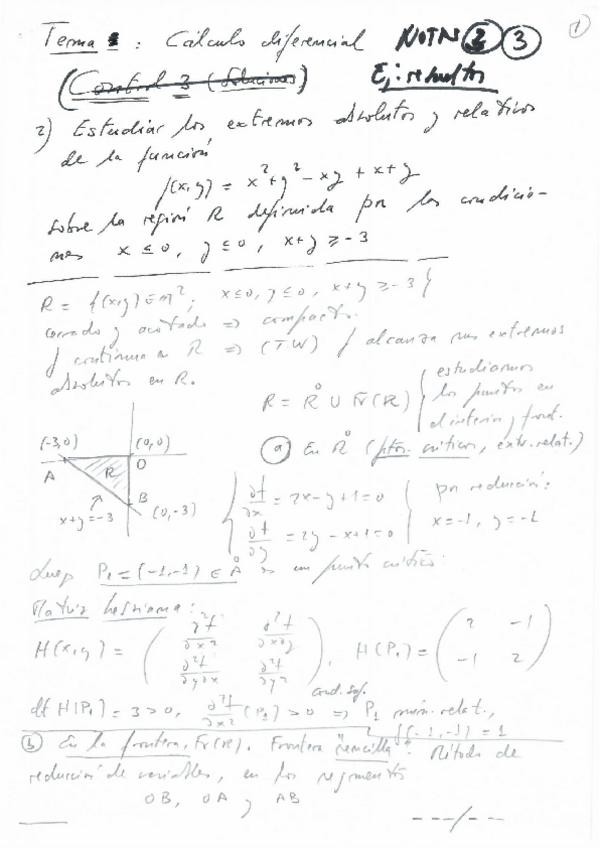 1
Tema : Cálculo diferencial NOTAS 2 3
(Control 3 (Soluciones) Ej: resueltos
2) Estudiar los extremos absolutos y relativos
de la función
f(x,y) = x² + y² - xy + x + y
sobre la región R definida por las condicio-
nes x ≤ 0, y ≤ 0, x+y ≥ -3
R = {(x,y) ∈ ℝ²; x ≤ 0, y ≤ 0, x+y ≥ -3}
cerrado y acotado ⇒ compacto.
f continua en R ⇒ (T.W) f alcanza sus extremos
absolutos en R.
R = R̊ ∪ Fr(R) { estudiamos
los puntos en
el interior y front.
a) En R̊ (ptos. críticos, extr. relat.)
(-3,0) (0,0)
A R O
B (0,-3)
x+y=-3
∂f/∂x = 2x - y + 1 = 0
∂f/∂y = 2y - x + 1 = 0
por reducción:
x = -1, y = -1
Luego P₁ = (-1,-1) ∈ Å es un punto crítico.
Matriz hessiana:
H(x,y) = ( ∂²f/∂x² ∂²f/∂x∂y
∂²f/∂y∂x ∂²f/∂y² ), H(P₁) = ( 2 -1
-1 2 )
cond. suf.
det H(P₁) = 3 > 0, ∂²f/∂x² (P₁) > 0 ⇒ P₁ mín. relat.,
f(-1,-1) = 1
b) En la frontera, Fr(R). Frontera "sencilla". Método de
reducción de variables, en los segmentos
OB, OA y AB
---/--